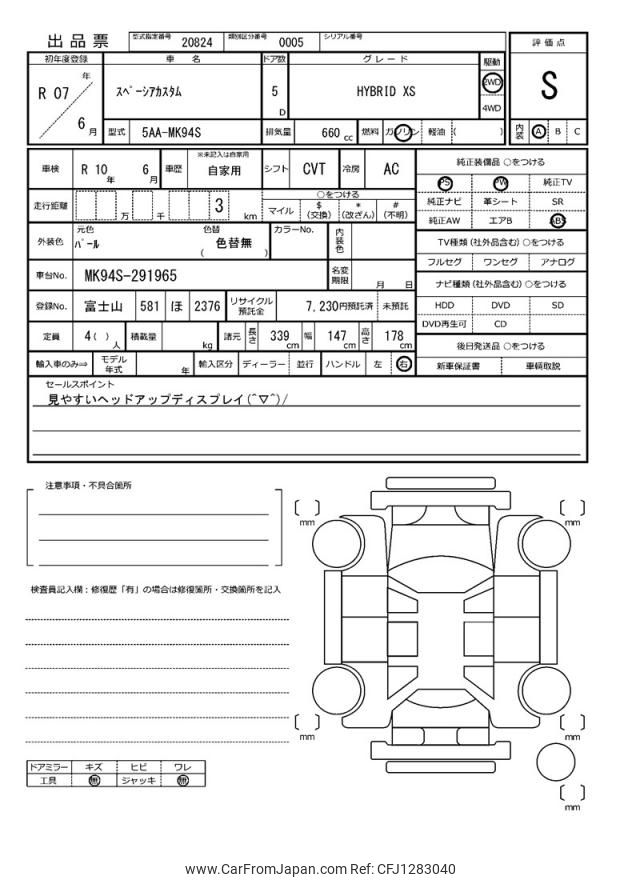 出品票
型式指定番号 20824 類別区分番号 0005 シリアル番号
評価点
S
内装 A B C
初年度登録 車名 ドア数 グレード 駆動
R 07 年 6 月
スペーシアカスタム 5 D HYBRID XS 2WD 4WD
型式 5AA-MK94S 排気量 660 cc 燃料 ガソリン 軽油 ( )
車検 R 10 年 6 月 車歴 ※未記入は自家用 自家用 シフト CVT 冷房 AC
走行距離 万 千 3 km ○をつける
マイル $(交換) *(改ざん) #(不明)
外装色 元色 パール 色替 色替無 ( ) カラーNo. 内装色
車台No. MK94S-291965 名変期限 月 日
登録No. 富士山 581 ほ 2376 リサイクル預託金 7,230円預託済 未預託
定員 4( ) 人 積載量 kg 諸元 長さ 339 cm 幅 147 cm 高さ 178 cm
輸入車のみ⇒ モデル年式 年 輸入区分 ディーラー 並行 ハンドル 左 右
純正装備品 ○をつける
PS PW 純正TV
純正ナビ 革シート SR
純正AW エアB ABS
TV種類 (社外品含む) ○をつける
フルセグ ワンセグ アナログ
ナビ種類 (社外品含む) ○をつける
HDD DVD SD
DVD再生可 CD
後日発送品 ○をつける
新車保証書 車輌取説
セールスポイント
見やすいヘッドアップディスプレイ(^▽^)/
注意事項・不具合箇所
検査員記入欄：修復歴「有」の場合は修復箇所・交換箇所を記入
ドアミラー キズ ヒビ ワレ
工具 無 ジャッキ 無
[ ] mm
[ ] mm
[ ] mm
[ ] mm
[ ] mm
www.CarFromJapan.com Ref: CFJ1283040